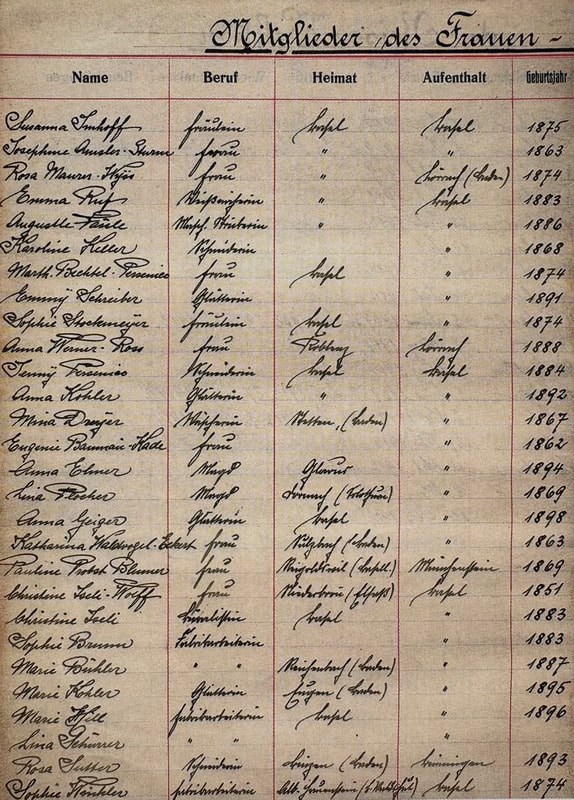 Mitglieder des Frauen-
Name Beruf Heimat Aufenthalt Geburtsjahr
Susanna Imhoff Fräulein Basel Basel 1875
Josephine Amsler-Sturm Frau " " 1863
Rosa Maurer- Frau " Lörrach (Baden) 1874
Emma Ruf Weißnäherin " Basel 1883
Auguste Masch. Strickerin " " 1886
Karoline Keller Schneiderin " 1868
Marth. Bechtel-Persenico Frau Basel " 1874
Emmy Schreiber Glätterin " 1891
Sophie Stockmeyer Fräulein Basel " 1874
Anna Werner-Ross Frau Koblenz Lörrach 1888
Jenny Persenico Schneiderin Basel Basel 1884
Anna Kohler Glätterin " " 1892
Mina Dreyer Wäscherin Stetten, (Baden) " 1867
Eugenie Baumann-Hade Frau " 1862
Anna Elmer Magd Glarus " 1894
Lina Plocher Magd Dornach (Solothurn) " 1869
Anna Geiger Glätterin Basel " 1898
Katharina Waldvogel-Eckert Frau Sulzbach (Baden) " 1863
Pauline Probst-Blumer Frau Reigoldswil (Basell.) Münchenstein 1869
Christine Iseli-Wolff Frau Niederbronn (Elsaß) Basel 1851
Christine Iseli Büralistin Basel " 1883
Sophie Brunn Fabrikarbeiterin " 1883
Marie Bühler " " Reichenbach (Baden) " 1887
Marie Kohler Glätterin (Baden) " 1895
Marie Hill Fabrikarbeiterin Basel " 1896
Lina Schürrer " " "
Rosa Sutter Schneiderin (Baden) Binningen 1893
Sophie Winkler Fabrikarbeiterin Alb. Basel 1874